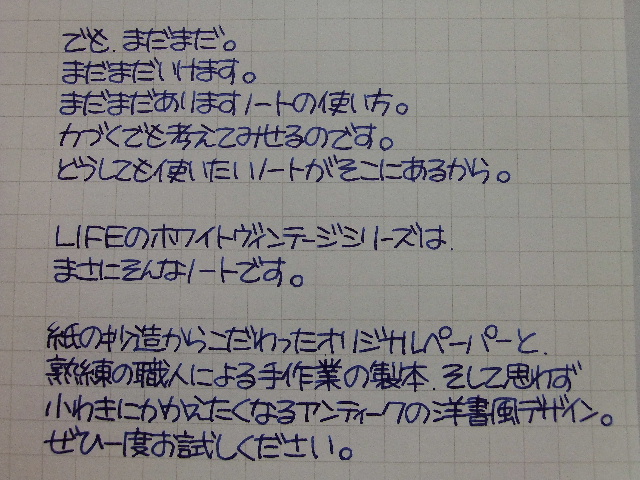 でも、まだまだ。
まだまだいけます。
まだまだありますノートの使い方。
力づくでも考えてみせるのです。
どうしても使いたいノートがそこにあるから。
LIFEのホワイトヴィンテージシリーズは、
まさにそんなノートです。
紙の抄造からこだわったオリジナルペーパーと、
熟練の職人による手作業の製本、そして思わず
小わきにかかえたくなるアンティークの洋書風デザイン。
ぜひ一度お試しください。